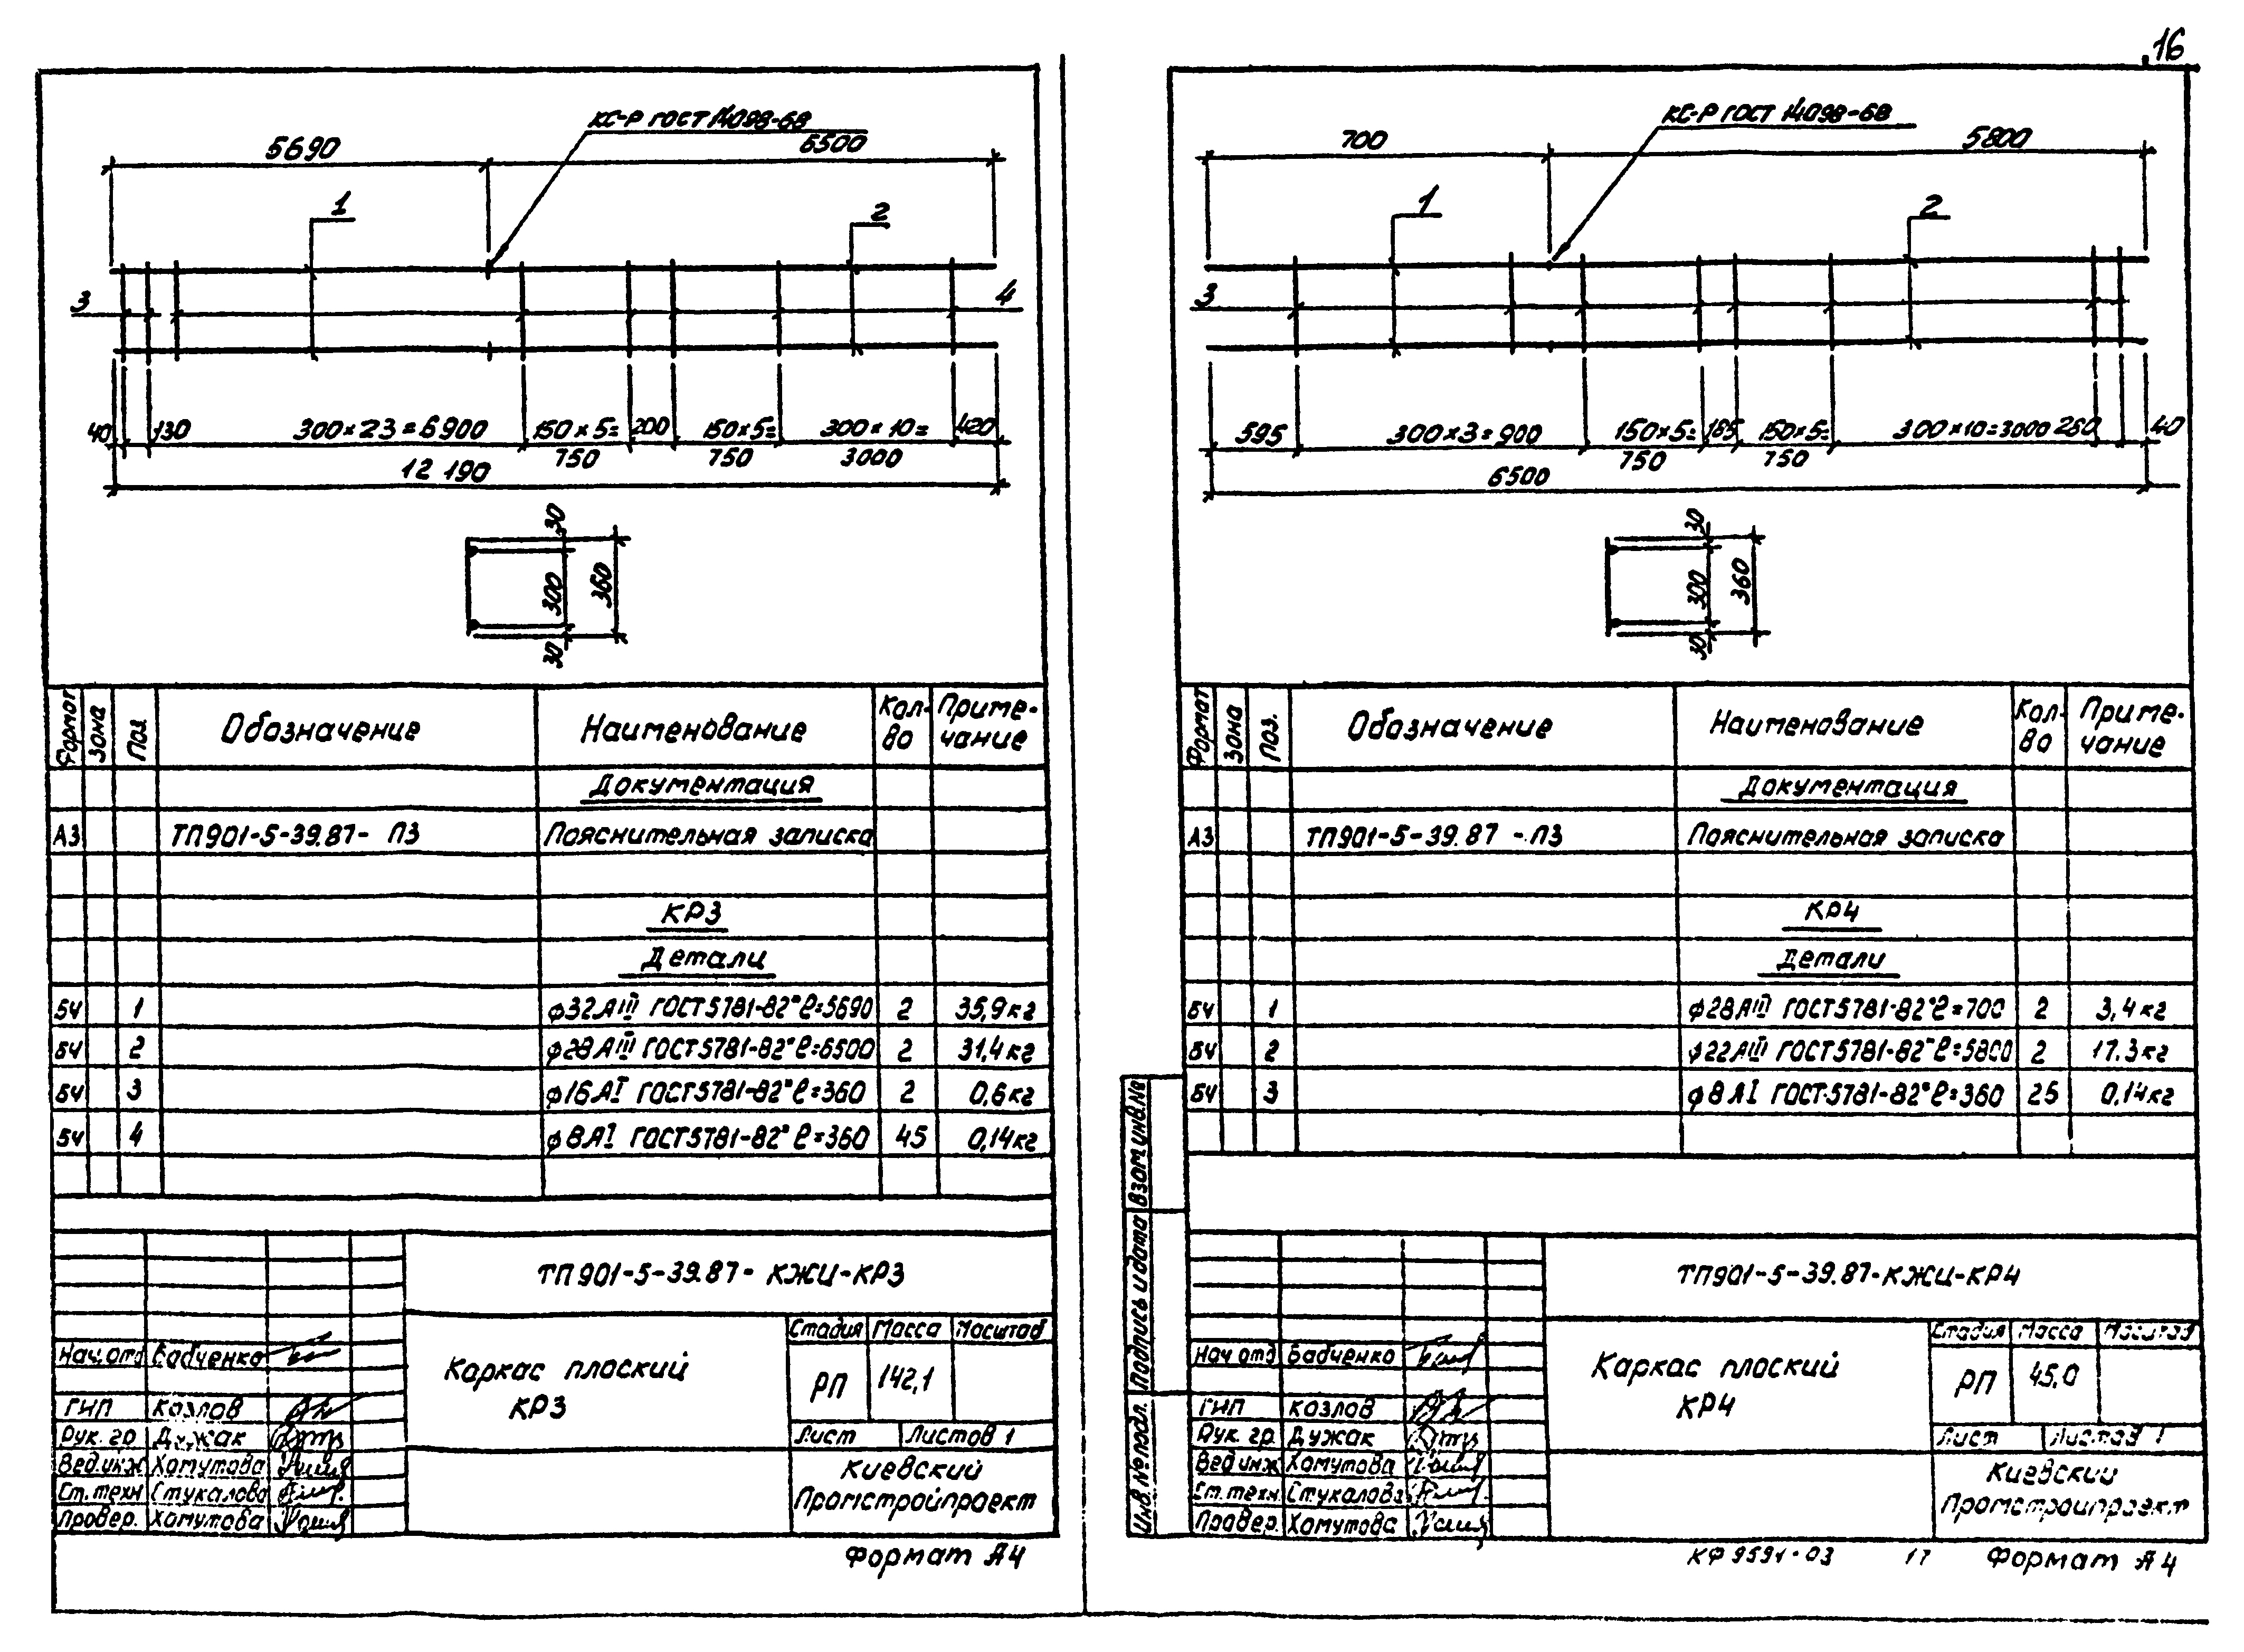 16
КС-Р ГОСТ 14098-68
5690
6500
1
2
3
4
40
130
300×23=6900
150×5=
750
200
150×5=
750
300×10=
3000
420
12 190
30
300
360
30
Формат
Зона
Поз
Обозначение
Наименование
Кол-во
Приме-
чание
Документация
А3 ТП901-5-39.87- ПЗ Пояснительная записка
КР3
Детали
БЧ 1 ф32АIII ГОСТ5781-82* ℓ=5690 2 35,9кг
БЧ 2 ф28АIII ГОСТ5781-82* ℓ=6500 2 31,4кг
БЧ 3 ф16АI ГОСТ5781-82* ℓ=360 2 0,6кг
БЧ 4 ф8АI ГОСТ5781-82* ℓ=360 45 0,14кг
ТП901-5-39.87- КЖИ-КР3
Стадия Масса Масштаб
Нач.отд Бабченко
Каркас плоский
КР3
РП 142,1
ГИП Козлов
Рук. гр Дужак
Лист Листов 1
Вед.инж Хомутова
Ст.техн Стукалова
Провер. Хомутова
Киевский
Промстройпроект
Формат А4
КС-Р ГОСТ 14098-68
700
5800
1
2
3
595
300×3=900
150×5=
750
185
150×5=
750
300×10=3000
280
40
6500
30
300
360
30
Формат
Зона
Поз.
Обозначение
Наименование
Кол-
во
Приме-
чание
Документация
А3 ТП901-5-39.87 - ПЗ Пояснительная записка
КР4
Детали
БЧ 1 ф28АIII ГОСТ5781-82* ℓ=700 2 3,4кг
БЧ 2 ф22АIII ГОСТ5781-82* ℓ=5800 2 17.3кг
БЧ 3 ф8АI ГОСТ5781-82* ℓ=360 25 0,14кг
Взам.инв.№
Подпись и дата
Инв.№ подл.
ТП901-5-39.87-КЖИ-КР4
Стадия Масса Масштаб
Нач отд Бабченко
Каркас плоский
КР4
РП 45,0
ГИП Козлов
Рук. гр. Дужак
Лист Листов 1
Вед инж Хомутова
Ст.техн. Стукалова
Провер. Хомутова
Киевский
Промстройпроект
КФ 9591-03 17 Формат А4